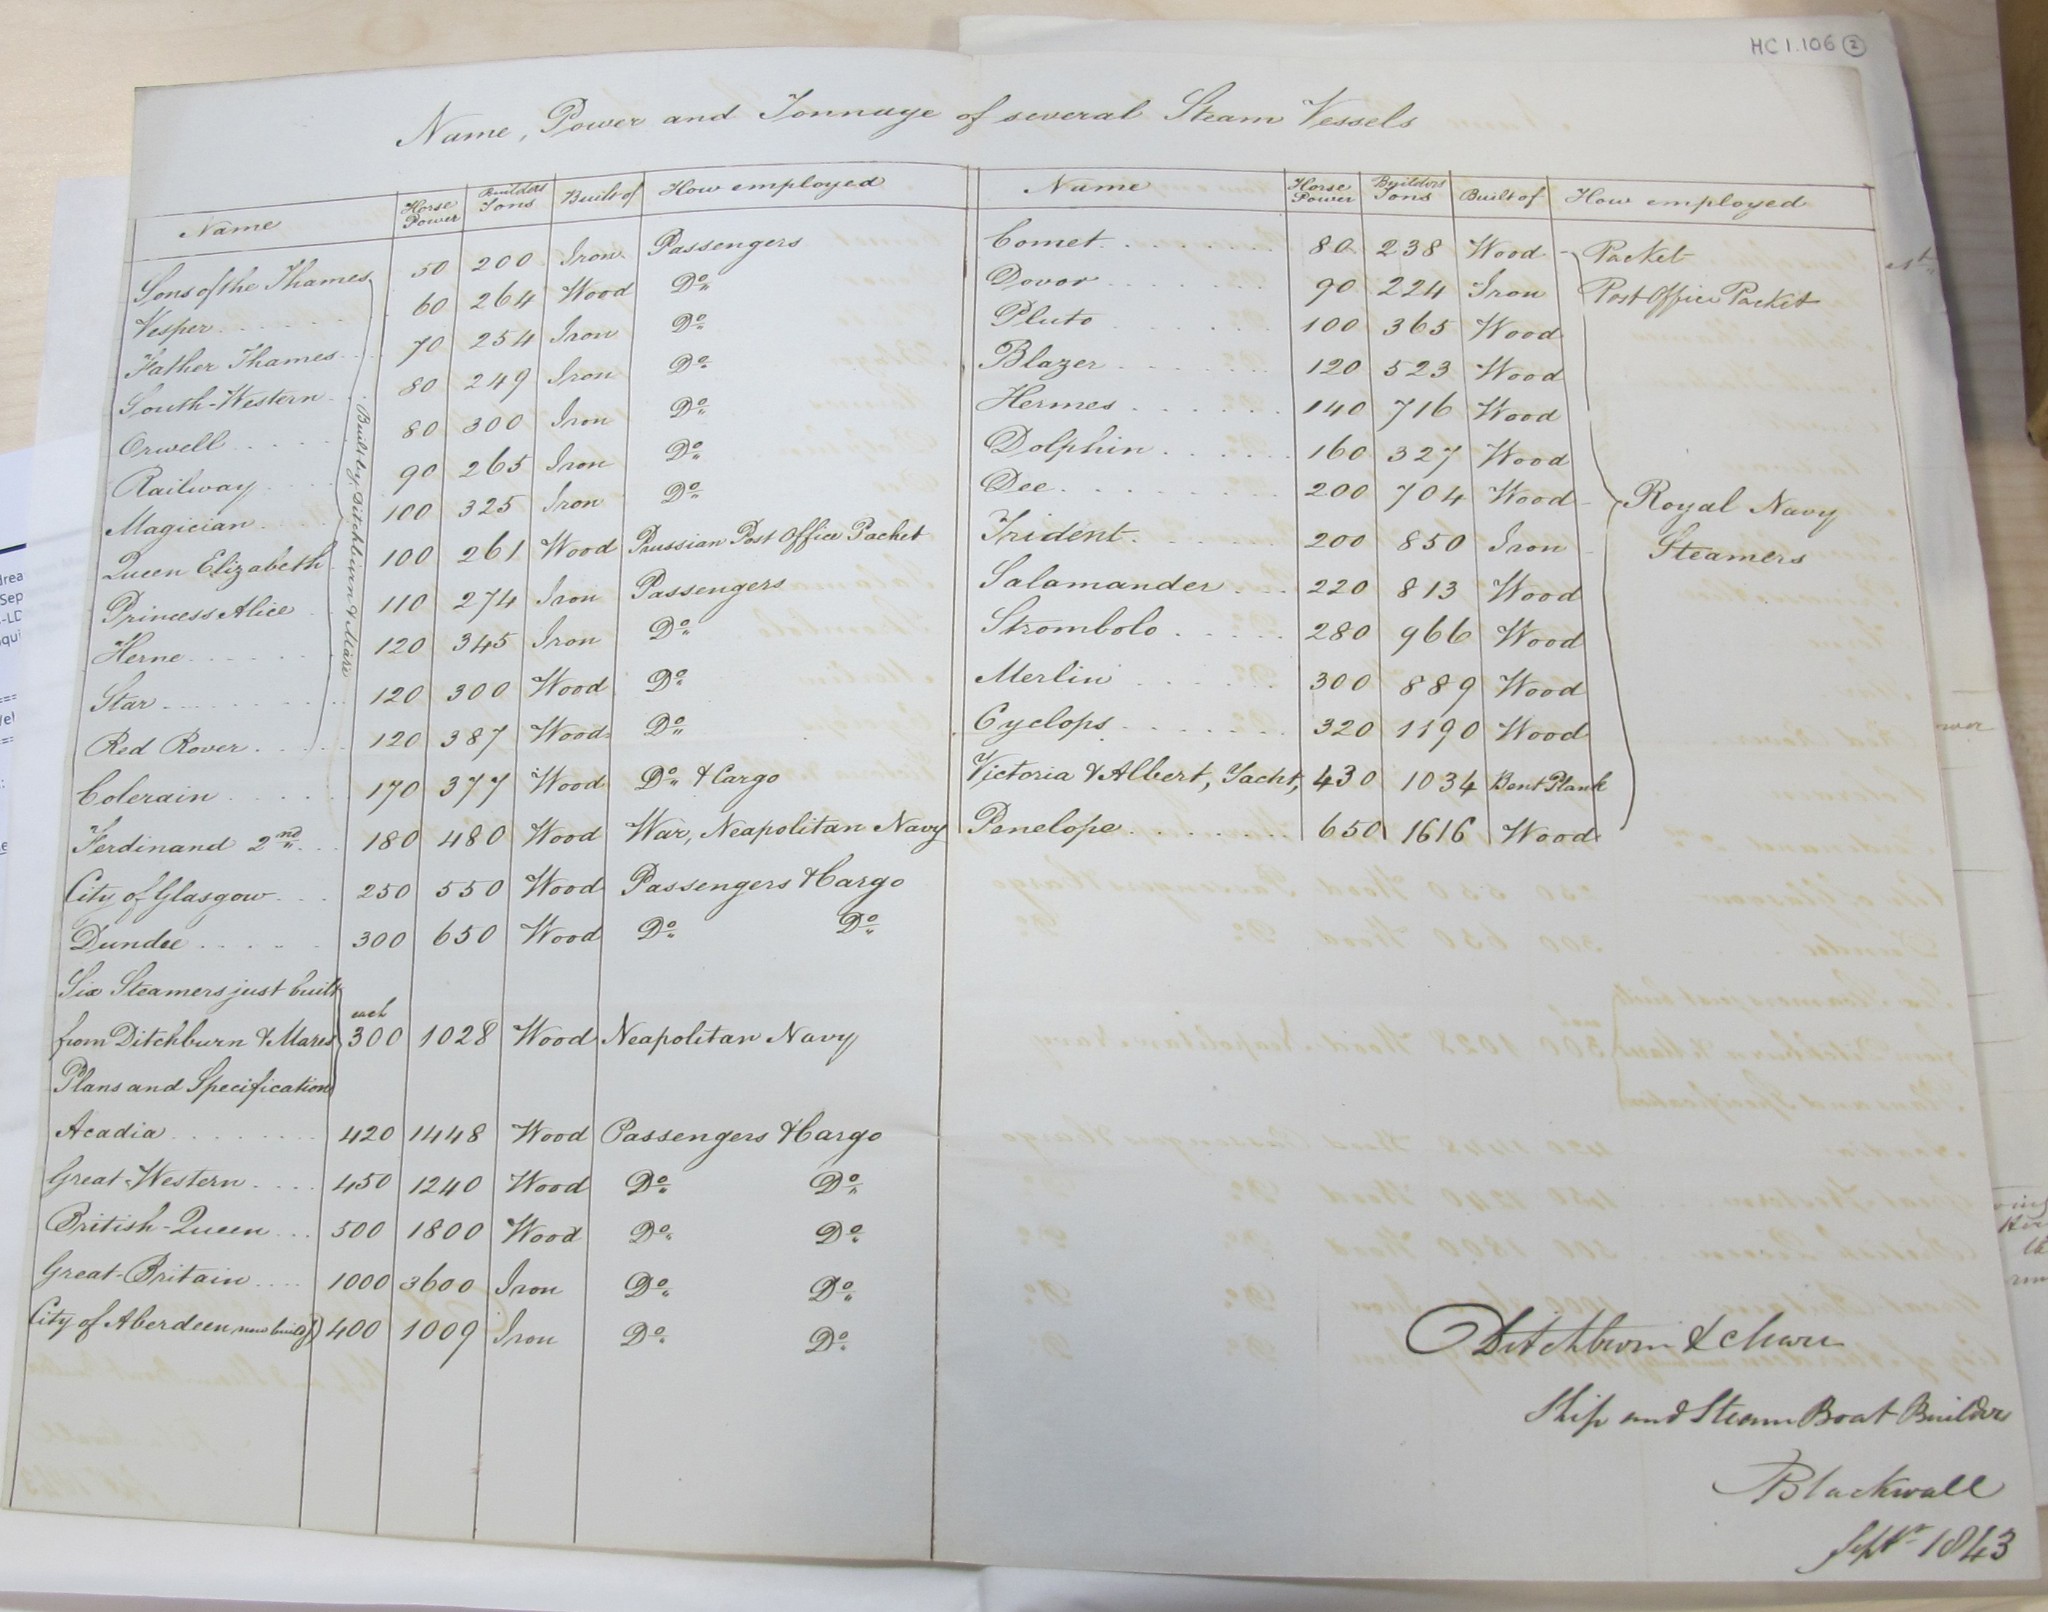 HC 1.106 2
Name, Power and Tonnage of several Steam Vessels
Name Horse Power Builders Tons Built of How employed
Sons of the Thames 50 200 Iron Passengers
Vesper 60 264 Wood Do
Father Thames 70 254 Iron Do
South-Western 80 249 Iron Do
Orwell 80 300 Iron Do
Railway 90 265 Iron Do
Magician 100 325 Iron Do
Queen Elizabeth 100 261 Wood Prussian Post Office Packet
Princess Alice 110 274 Iron Passengers
Herne 120 345 Iron Do
Star 120 300 Wood Do
Red Rover 120 387 Wood Do
Built by Ditchburn & Mare
Colerain 170 377 Wood Do & Cargo
Ferdinand 2nd 180 480 Wood War, Neapolitan Navy
City of Glasgow 250 550 Wood Passengers & Cargo
Dundee 300 650 Wood Do Do
Six Steamers just built
from Ditchburn & Mares each 300 1028 Wood Neapolitan Navy
Plans and Specification
Acadia 420 1448 Wood Passengers & Cargo
Great-Western 450 1240 Wood Do Do
British-Queen 500 1800 Wood Do Do
Great-Britain 1000 3600 Iron Do Do
City of Aberdeen now buildg) 400 1009 Iron Do Do
Name Horse Power Builders Tons Built of How employed
Comet 80 238 Wood Packet
Dovor 90 224 Iron Post Office Packet
Pluto 100 365 Wood
Blazer 120 523 Wood
Hermes 140 716 Wood
Dolphin 160 327 Wood
Dee 200 704 Wood
Trident 200 850 Iron
Salamander 220 813 Wood
Strombolo 280 966 Wood
Merlin 300 889 Wood
Cyclops 320 1190 Wood
Victoria & Albert, Yacht, 430 1034 Bent Plank
Penelope 650 1616 Wood
Royal Navy
Steamers
Ditchburn & Mare
Ship and Steam Boat Builders
Blackwall
Septr 1843